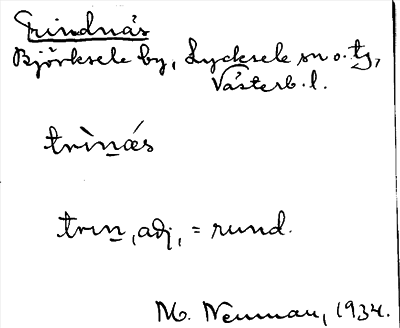 Trindnäs
Björksele by, Lycksele sn o. tg,
Västerb. l.
trìnás
trın, adj, = rund.
M. Neuman, 1934.